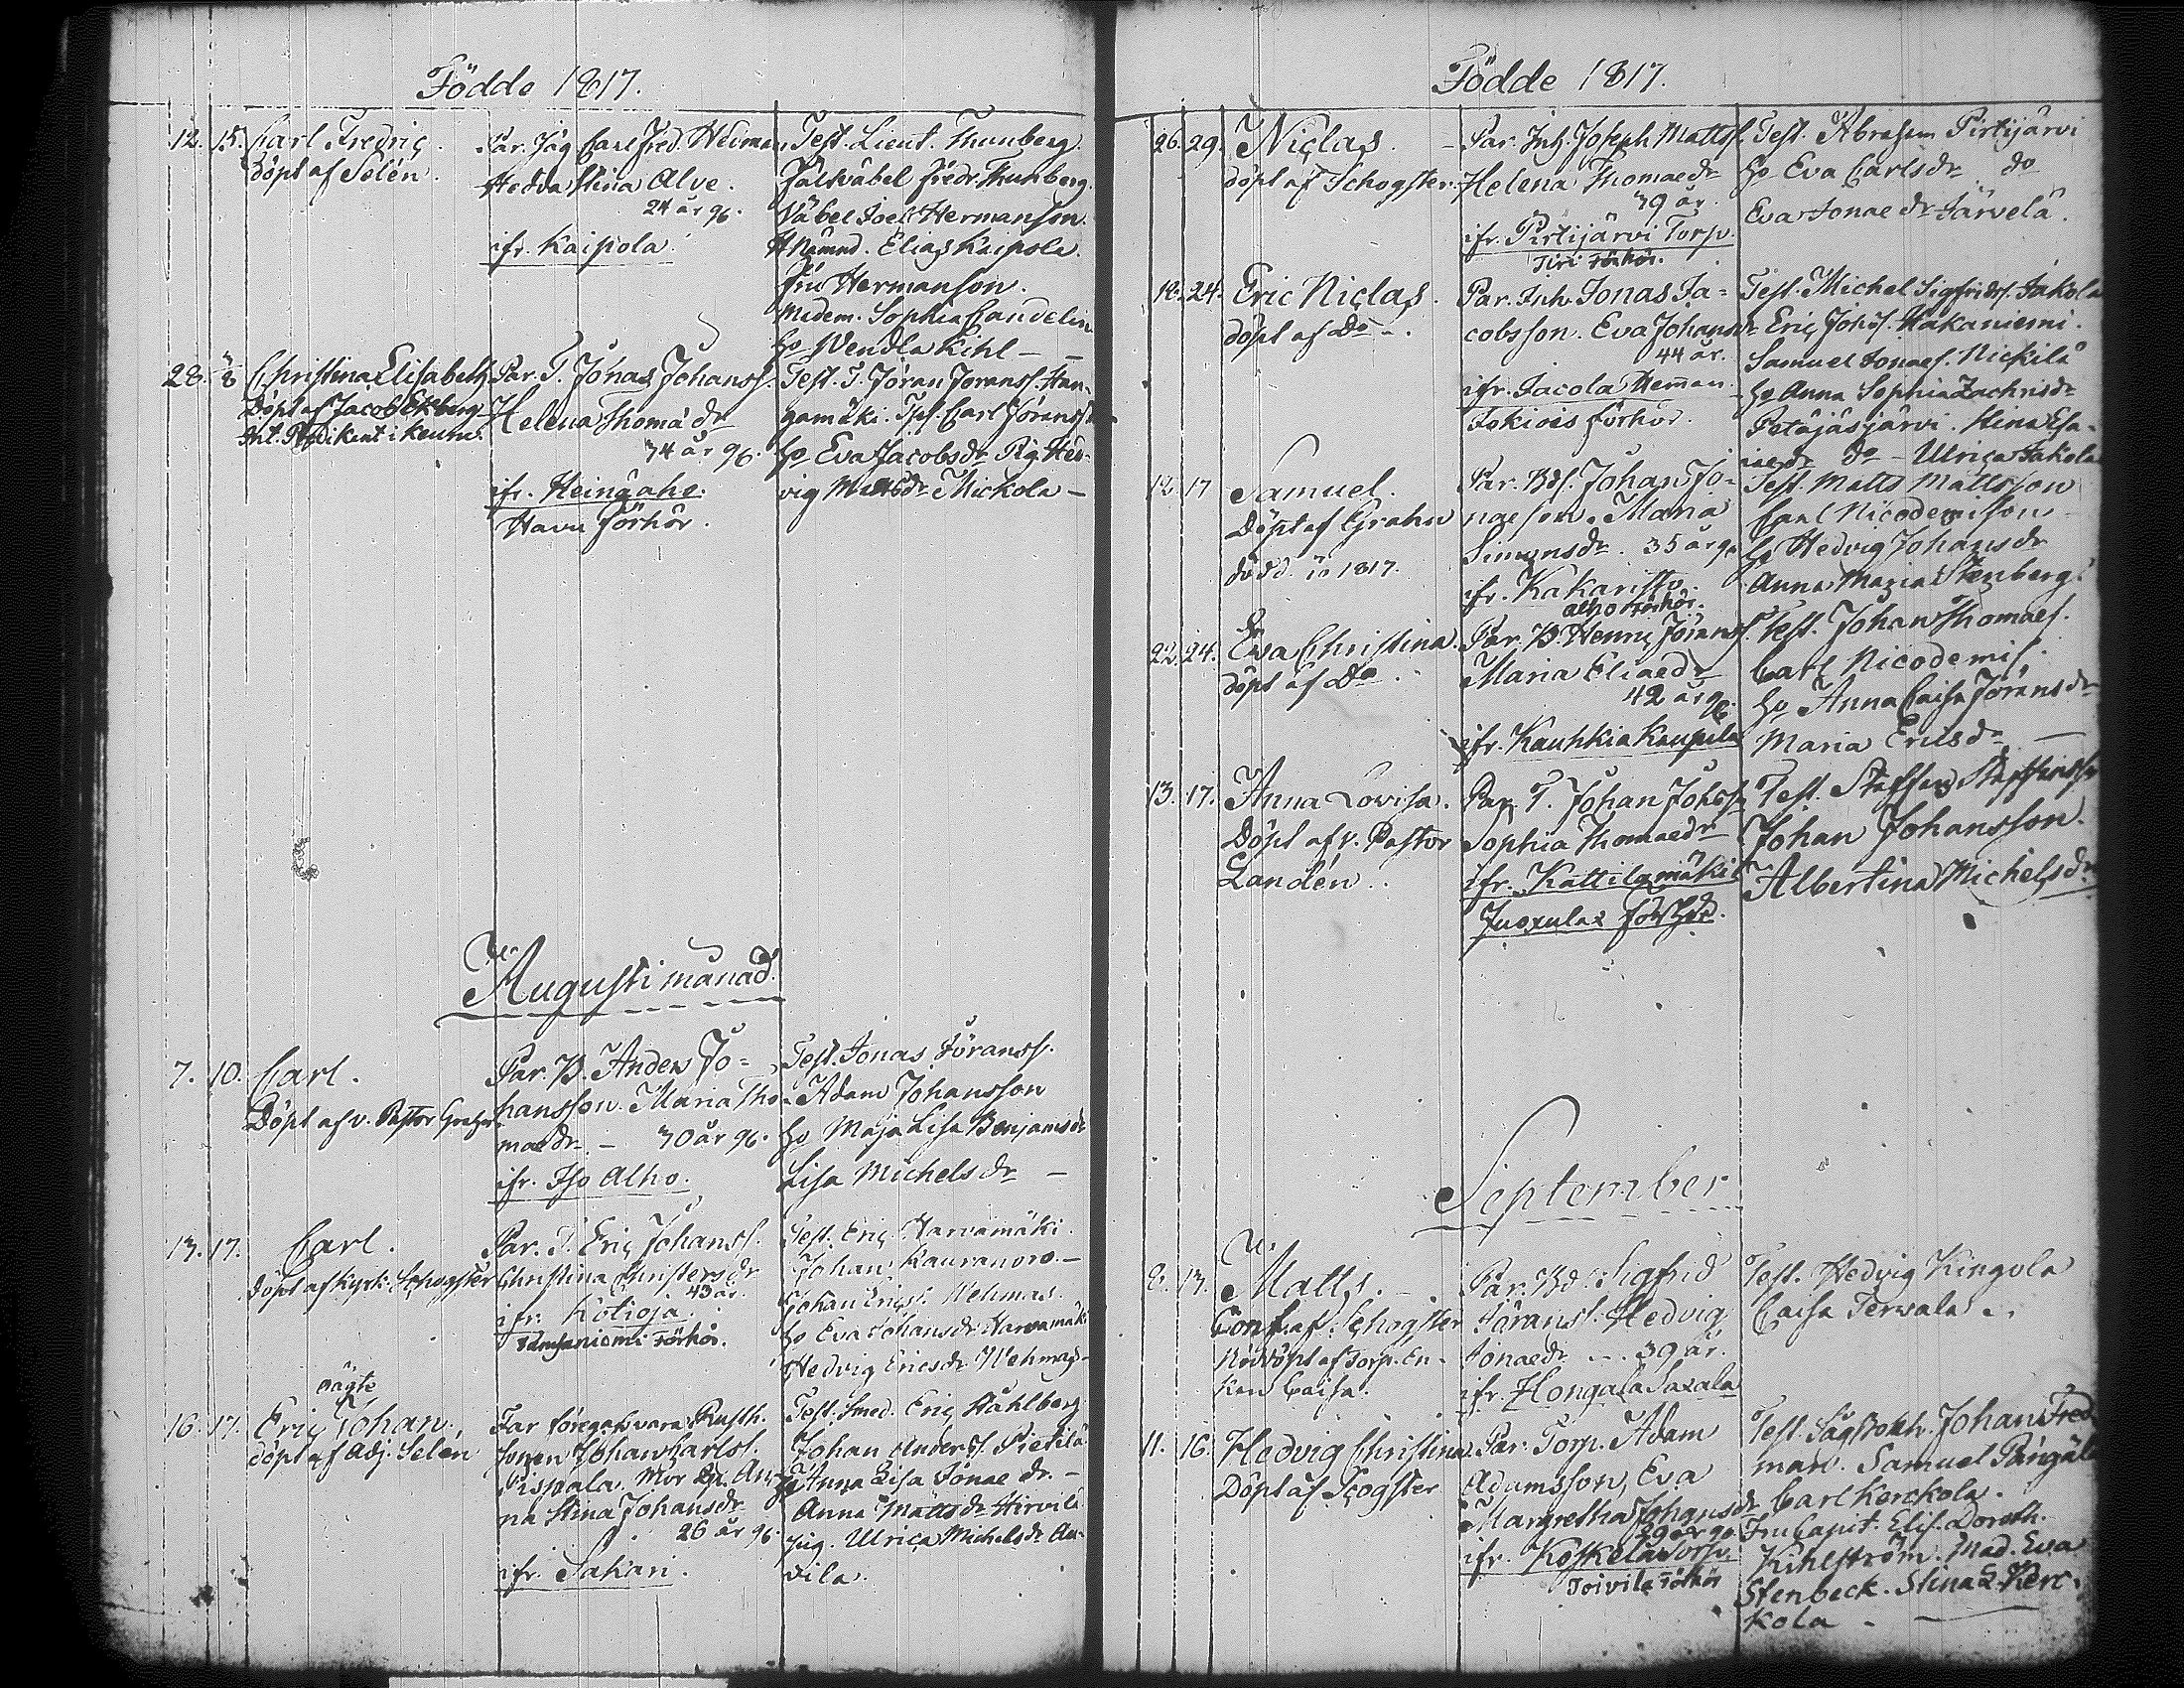 Födde 1817.
12. 15. Carl Fredric.
döpt af Selén.
Par. Jäg Carl Fred. Heiman
Hedda Stina Alve.
24 år 96.
ifr. Kaipola.
Test. Lieut. Thunberg.
Fältväbel Fredr. Thunberg.
Väbel Joel Hermanson.
Nämnd. Elias Kaipola.
Fru Hermanson.
Madem. Sophia Candelin
Ho Wendla Kihl -
28. Christina Elisabeth
Döpt af Jacob Ekberg
Par. T. Jonas Johanss.
Helena Thomædr
34 år 96.
ifr. Heinäaho.
Havu förhör.
Test. T. Jöran Joranss. Han-
gamäki. Carl Jöranss.
Ho Eva Jacobsdr Pig. Hed-
vig Mattsdr Mickola -
Augusti månad.
7. 10. Carl.
Döpt af v. Pastor Grahn
Par. B. Anders Jo-
hansson. Maria Tho-
mædr. - 30 år 96.
ifr. Iso Alho.
Test. Jonas Jöranss.
Adam Johansson
Ho Maja Lisa Benjamsdr
Lisa Michelsdr -
13. 17. Carl.
döpt af Kyrk. Schogster
Par. T. Eric Johanss.
Christina Christersdr
43 år.
ifr. Kotioja.
förhör.
Test. Eric Harvamäki.
Johan Kauranoro. -
Johan Erics. Wehmas.
Ho Eva Johansdr Harvamäki
Hedvig Ericsdr. Wehmas -
oägte
16. 17. Eric Johan.
döpt af Adj. Selen
Far föregafs vara Rusth.
sonen Johan Carlss.
Pispala. Mor Pig. An-
na Stina Johansdr
26 år 96.
ifr. Sakari.
Test. Smed. Eric Ståhlberg
Johan Anderss. Pietilä
Ho Anna Lisa Jonae dr. -
Anna Mattsdr Hirvilä
pig. Ulrica Michelsdr An-
dila.
Födde 1817.
26. 29. Niclas.
döpt af Schogster.
Par. Inh. Joseph Mattss.
Helena Thomaedr
39 år.
ifr. Pirtijärvi Torp.
förhör.
Test. Abraham Pirtijärvi
Ho Eva Carlsdr do
Eva Jonae dr Järvelä.
18. 24. Eric Niclas.
döpt af Do.
Par. Inh. Jonas Ja-
cobsson. Eva Johansdr
44 år.
ifr. Jacola Heman
Jokiois förhör.
Test. Michel Sigfridss. Jakola
Eric Johss. Hakaniemi.
Samuel Jonaes. Nickilä
Ho Anna Sophia Zachrisdr
Petäjäsjärvi. Stina Esa-
iaedr do - Ulrica Jakola
12. 17 Samuel.
Döpt af Grahn
död. 1817.
Par. Bds. Johan Jo-
naeson. Maria
Simonsdr. 35 år 96
ifr. Kakaristo.
Alho förhör.
Test. Matts Mattsson
Carl Nicodemisson
Ho Hedvig Johansdr
Anna Maria Stenberg.
22. 24. Eva Christina.
döpt af Do.
Par. B. Henric Jöranss.
Maria Eliaedr
42 år 96.
ifr. Kauhkia Kaupila
Test. Johan Thomaes.
Carl Nicodemis.
Ho Anna Caisa Jöransdr
Maria Ericsdr -
13. 17. Anna Lovisa.
Döpt af v. Pastor
Landén.
Par. T. Johan Johss.
Sophia Thomaedr
ifr. Kattilamäki
förhör.
Test. Staffan Staffanss
Johan Johansson.
Albertina Michelsdr
September
8. 13. Matts.
Conf. af Schogster
Nöddöpt af Torp. En-
kan Caisa.
Par. Bd. Sigfrid
Jöranss. Hedvig
Jonaedr - 39 år.
ifr. Hongala Saxala
Test. Hedvig Kingola
Caisa Terwala.
11. 16. Hedvig Christina
Döpt af Scogster
Par. Torp. Adam
Adamsson, Eva
Margretha Johansdr
29 år 96
ifr. Koskela Torp.
Toivila förhör
Test. Johan Fred
man. Samuel
Carl Kerckola.
Fru Capit. Elis. Doroth.
Kihlström. Mad. Eva
Stenbeck. Stina L. Kerc-
kola -